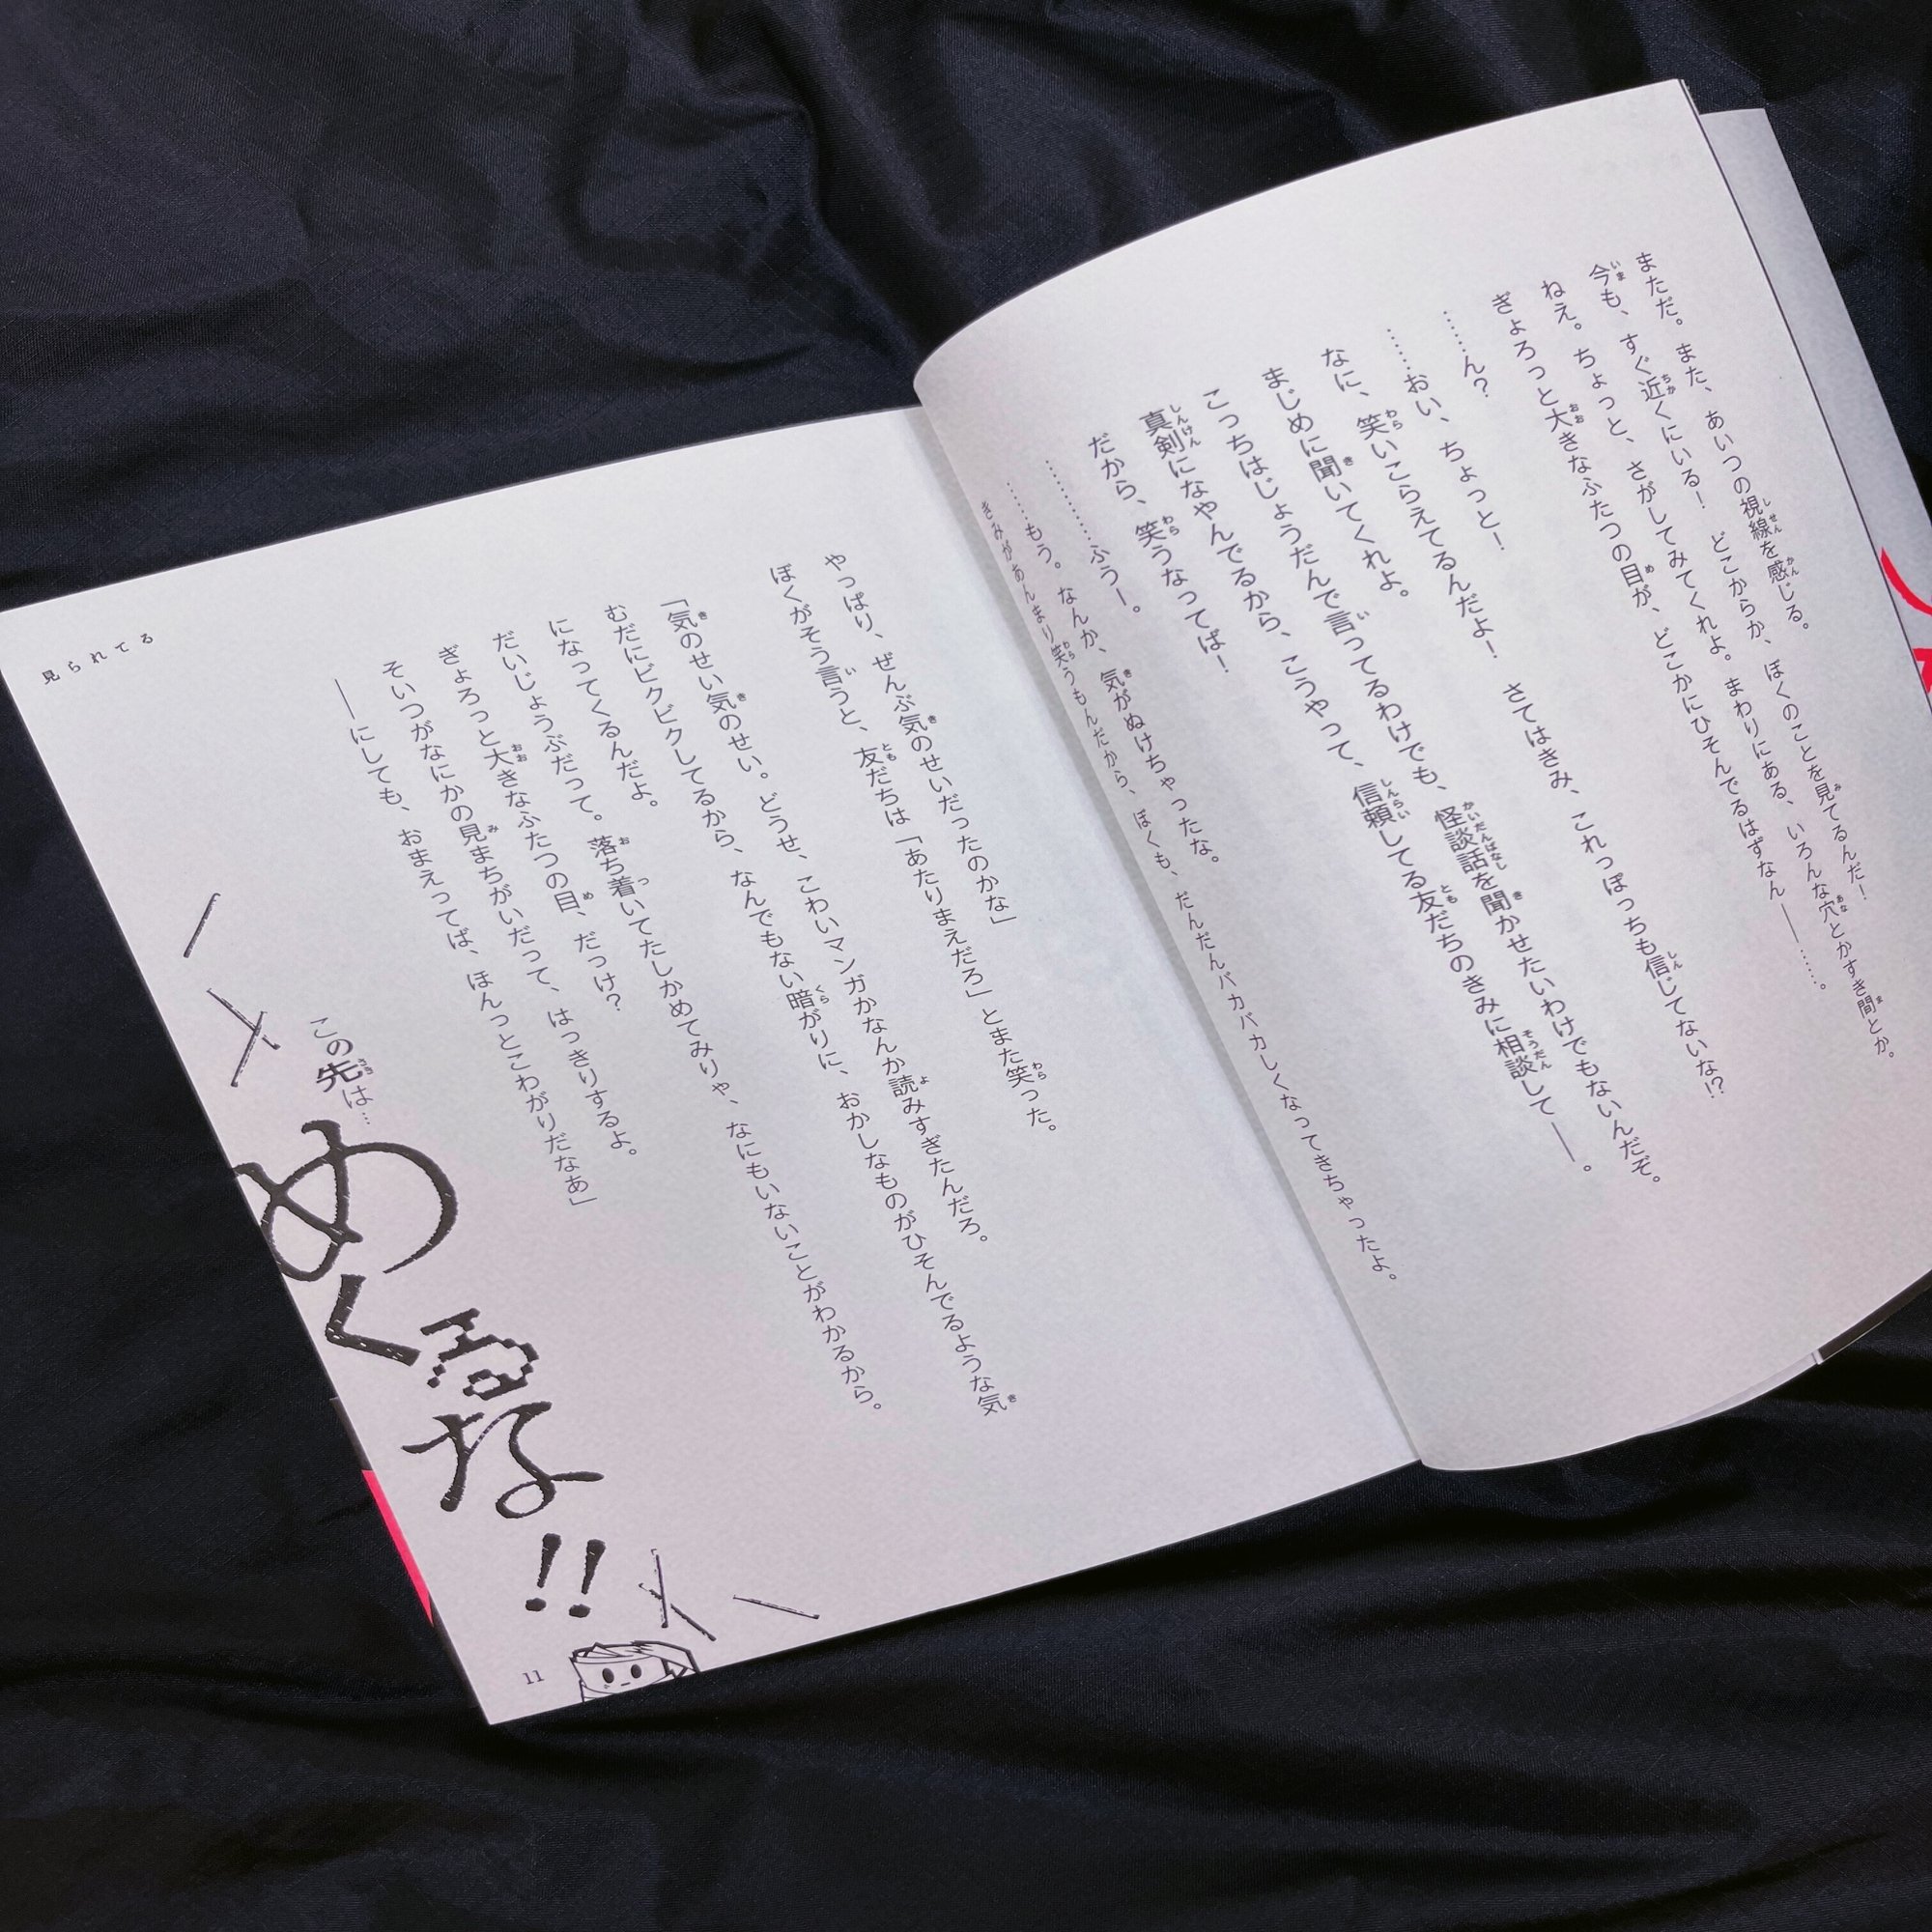 まただ。また、あいつの視線を感じる。
今も、すぐ近くにいる！　どこからか、ぼくのことを見てるんだ！
ねえ。ちょっと、さがしてみてくれよ。まわりにある、いろんな穴とかすき間とか。
ぎょろっと大きなふたつの目が、どこかにひそんでるはずなん――……。
……ん？
……おい、ちょっと！
なに、笑いこらえてるんだよ！　さてはきみ、これっぽっちも信じてないな!?
まじめに聞いてくれよ。
こっちはじょうだんで言ってるわけでも、怪談話を聞かせたいわけでもないんだぞ。
真剣になやんでるから、こうやって、信頼してる友だちのきみに相談して――。
だから、笑うなってば！
…………ふうー。
……もう。なんか、気がぬけちゃったな。
きみがあんまり笑うもんだから、ぼくも、だんだんバカバカしくなってきちゃったよ。
やっぱり、ぜんぶ気のせいだったのかな」
ぼくがそう言うと、友だちは「あたりまえだろ」とまた笑った。
「気のせい気のせい。どうせ、こわいマンガかなんか読みすぎたんだろ。
むだにビクビクしてるから、なんでもない暗がりに、おかしなものがひそんでるような気
になってくるんだよ。
だいじょうぶだって。落ち着いてたしかめてみりゃ、なにもいないことがわかるから。
ぎょろっと大きなふたつの目、だっけ？
そいつがなにかの見まちがいだって、はっきりするよ。
――にしても、おまえってば、ほんっとこわがりだなあ」
見られてる
この先は…
めくるな!!
11